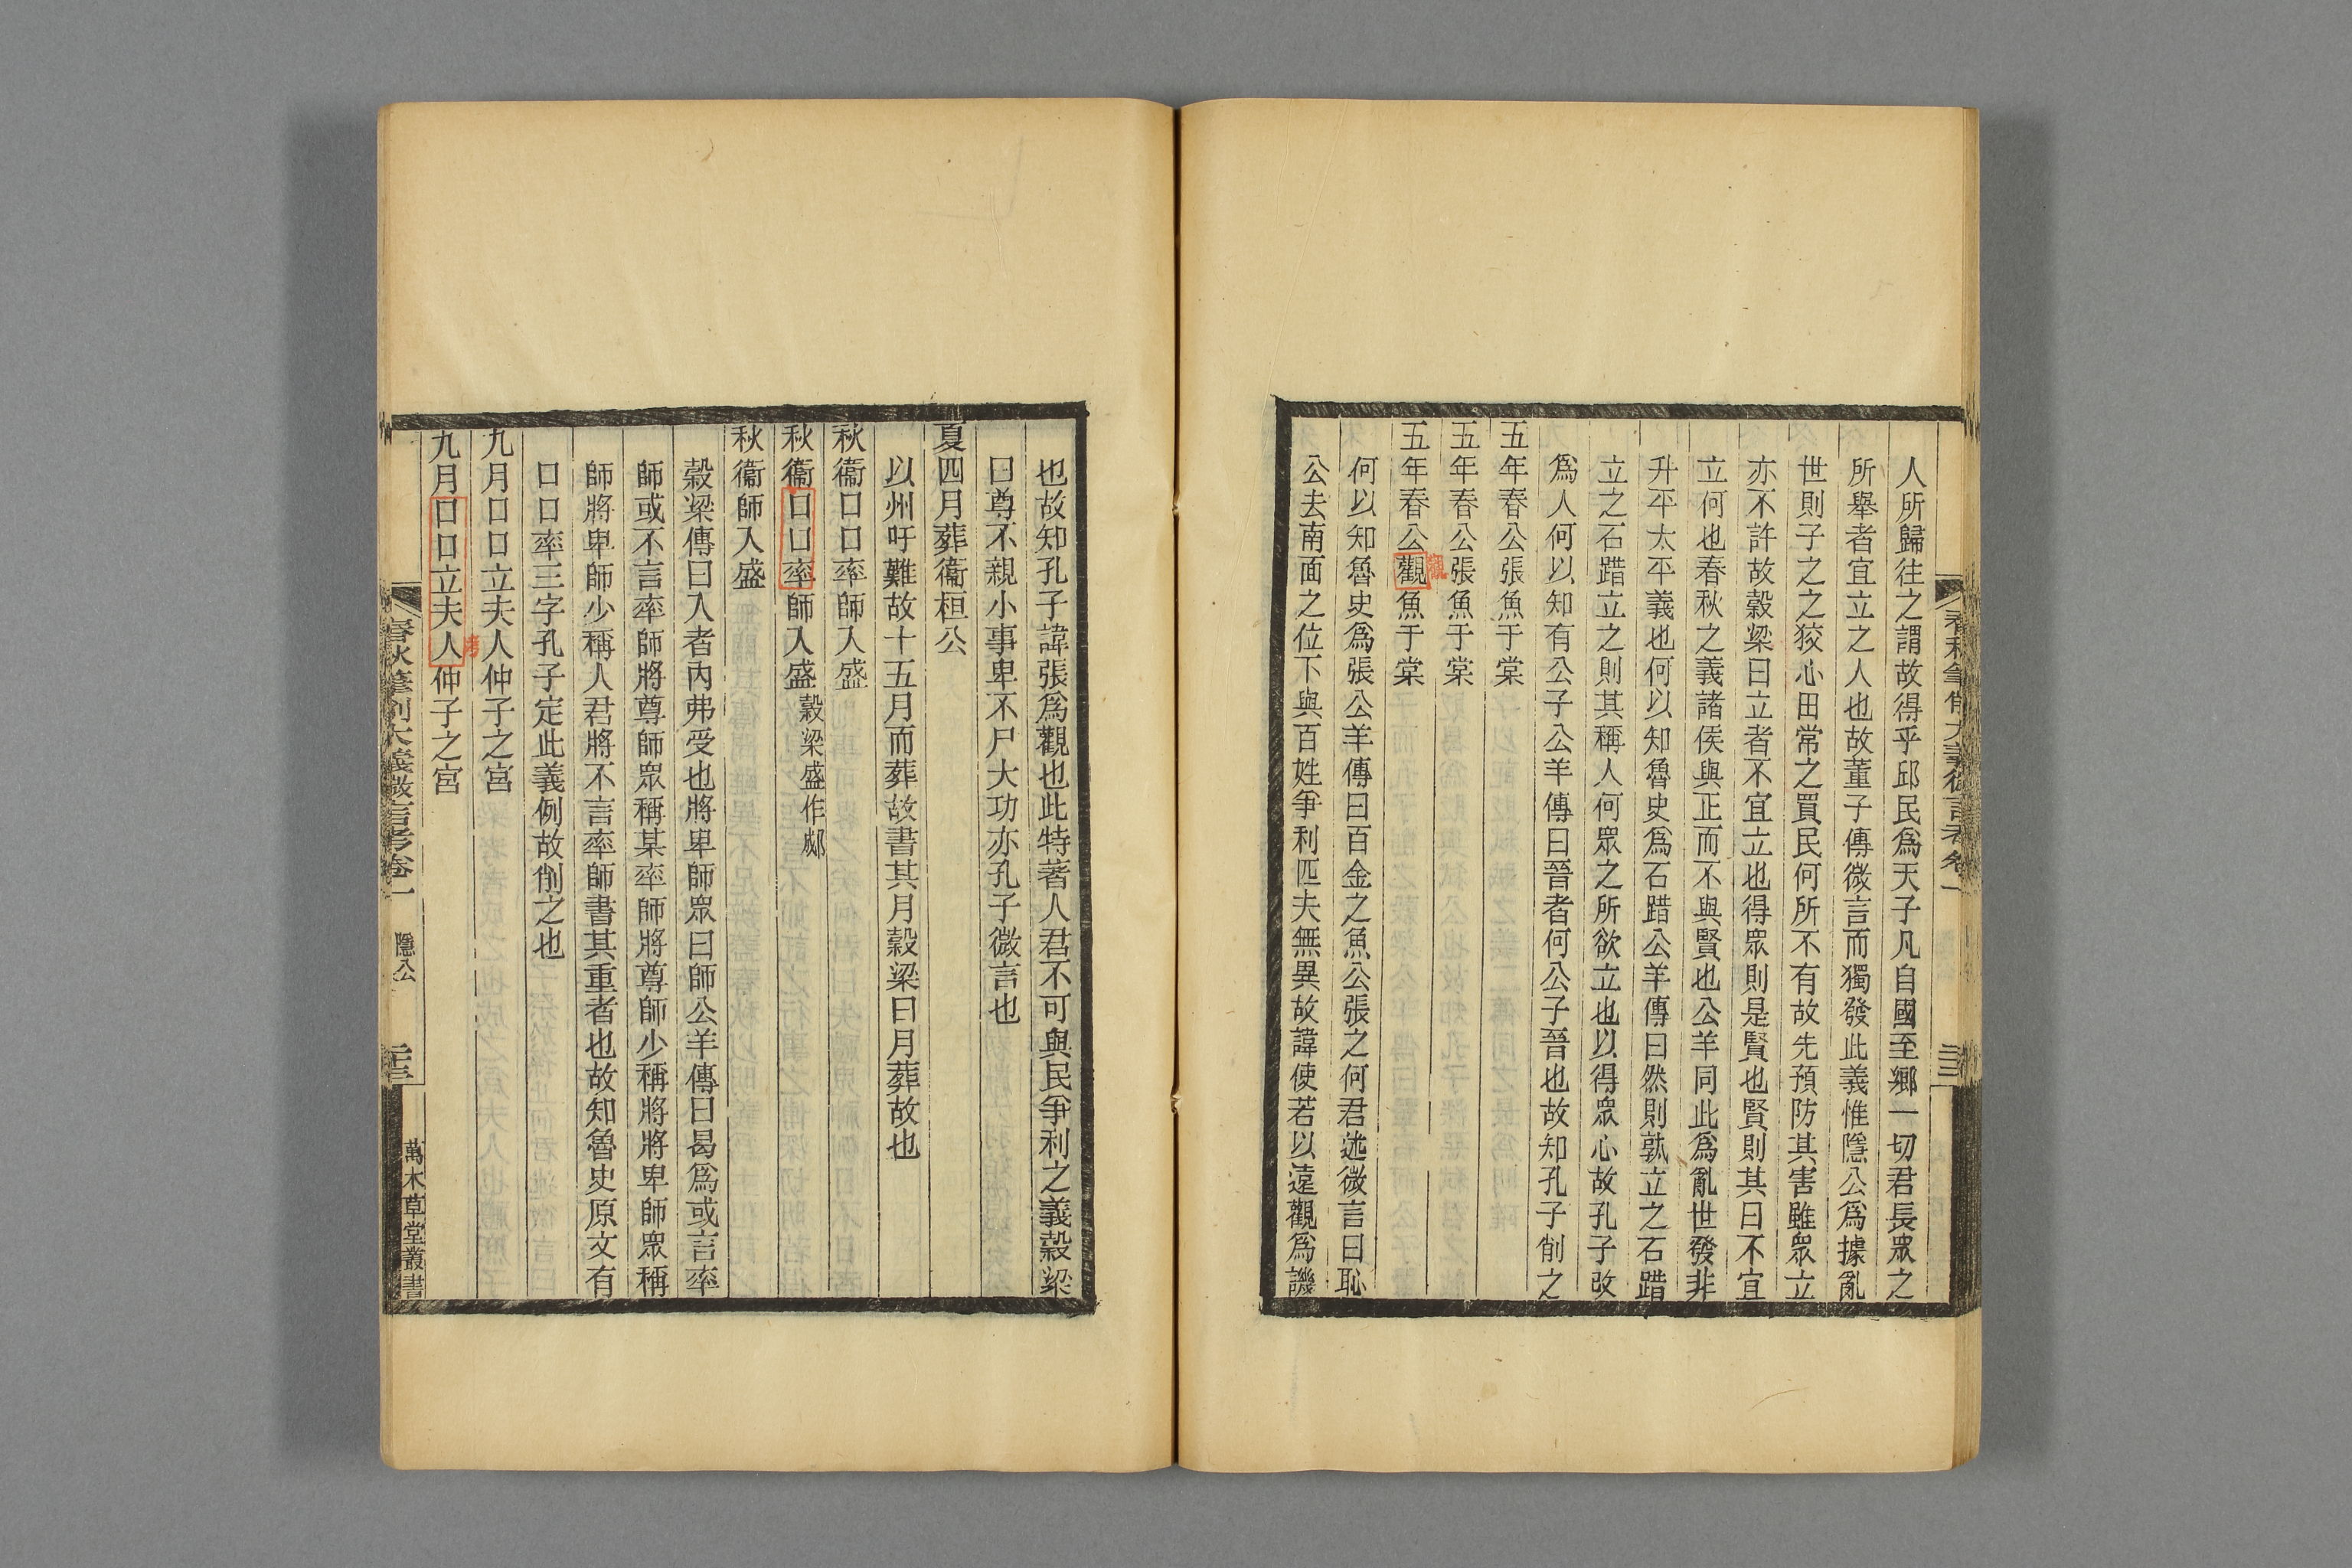 春秋筆削大義微言考卷一
三三
人所歸往之謂故得乎邱民爲天子凡自國至鄉一切君長眾之
所舉者宜立之人也故董子傳微言而獨發此義惟隱公爲據亂
世則子之之狡心田常之買民何所不有故先預防其害雖眾立
亦不許故穀梁曰立者不宜立也得眾則是賢也賢則其曰不宜
立何也春秋之義諸侯與正而不與賢也公羊同此爲亂世發非
升平太平義也何以知魯史爲石踖公羊傳曰然則孰立之石踖
立之石踖立之則其稱人何眾之所欲立也以得眾心故孔子改
爲人何以知有公子公羊傳曰晉者何公子晉也故知孔子削之
五年春公張魚于棠
五年春公張魚于棠
觀
五年春公觀魚于棠
何以知魯史爲張公羊傳曰百金之魚公張之何君述微言曰恥
公去南面之位下與百姓爭利匹夫無異故諱使若以遠觀爲譏
也故知孔子諱張爲觀也此特著人君不可與民爭利之義穀梁
曰尊不親小事卑不尸大功亦孔子微言也
夏四月葬衞桓公
以州吁難故十五月而葬故書其月穀梁曰月葬故也
秋衞口口率師入盛
秋衞口口率師入盛 穀梁盛作郕
秋衞師入盛
穀梁傳曰入者內弗受也將卑師眾曰師公羊傳曰曷爲或言率
師或不言率師將尊師眾稱某率師將尊師少稱將將卑師眾稱
師將卑師少稱人君將不言率師書其重者也故知魯史原文有
口口率三字孔子定此義例故削之也
九月口口立夫人仲子之宮
考
九月口口立夫人仲子之宮
春秋筆削大義微言考卷一
隱公
三三
萬木草堂叢書